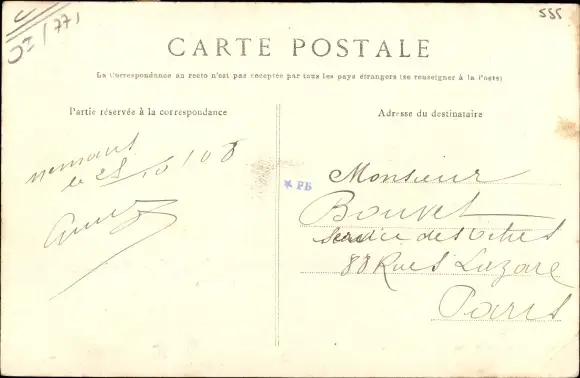 555
CARTE POSTALE
La Correspondance au recto n'est pas acceptée par tous les pays étrangers (se renseigner à la Poste)
Partie réservée à la correspondance
Adresse du destinataire
le 25/10/08
PB
Monsieur
Bouvet
Service des Titres
88 Rue St Lazare
Paris